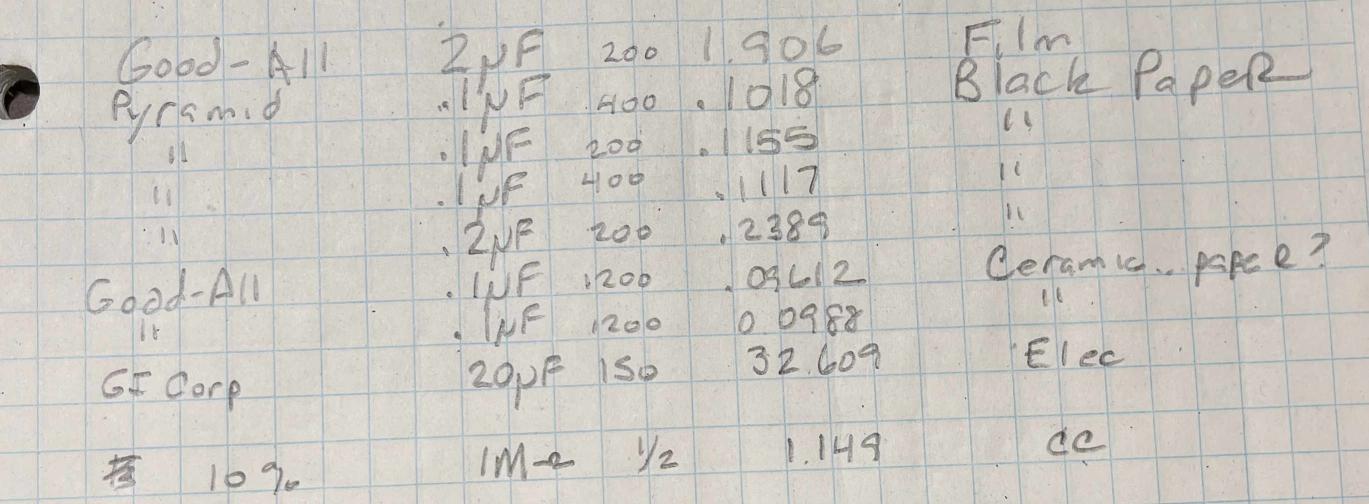 Good-All 2µF 200 1.906 Film
Pyramid .1µF 400 .1018 Black Paper
" .1µF 200 .1155 "
" .1µF 400 .1117 "
" .2µF 200 .2389 "
Good-All .1µF 1200 .09612 Ceramic.. paper?
" .1µF 1200 0.0988 "
GI Corp 20µF 150 32.609 Elec
10% 1M 1/2 1.149 CC